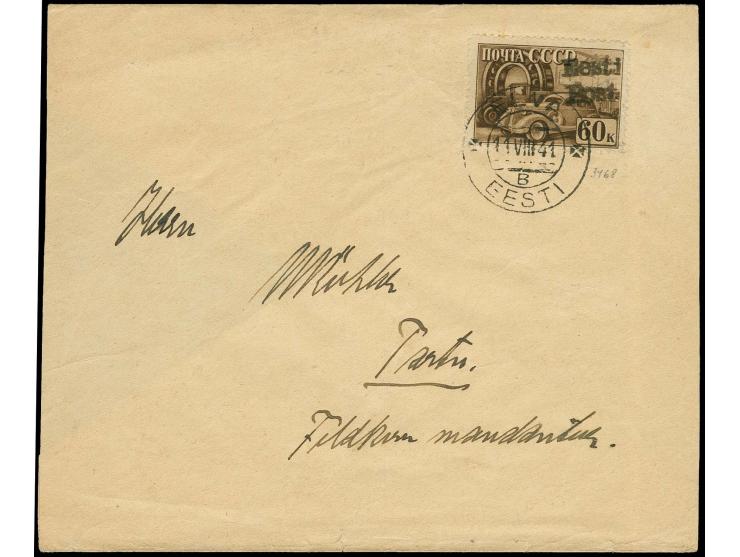 ПОЧТА СССР
Eesti
Post
60 к
ELVA
11 VIII 41
B
EESTI
3468
Herrn
Möhler
Tartu.
Feldkommandantur.